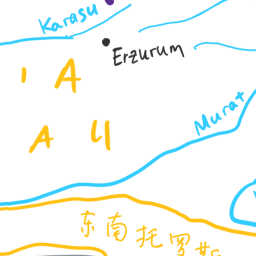 Karasu
Erzurum
I A
A U
Murat
东南托罗斯